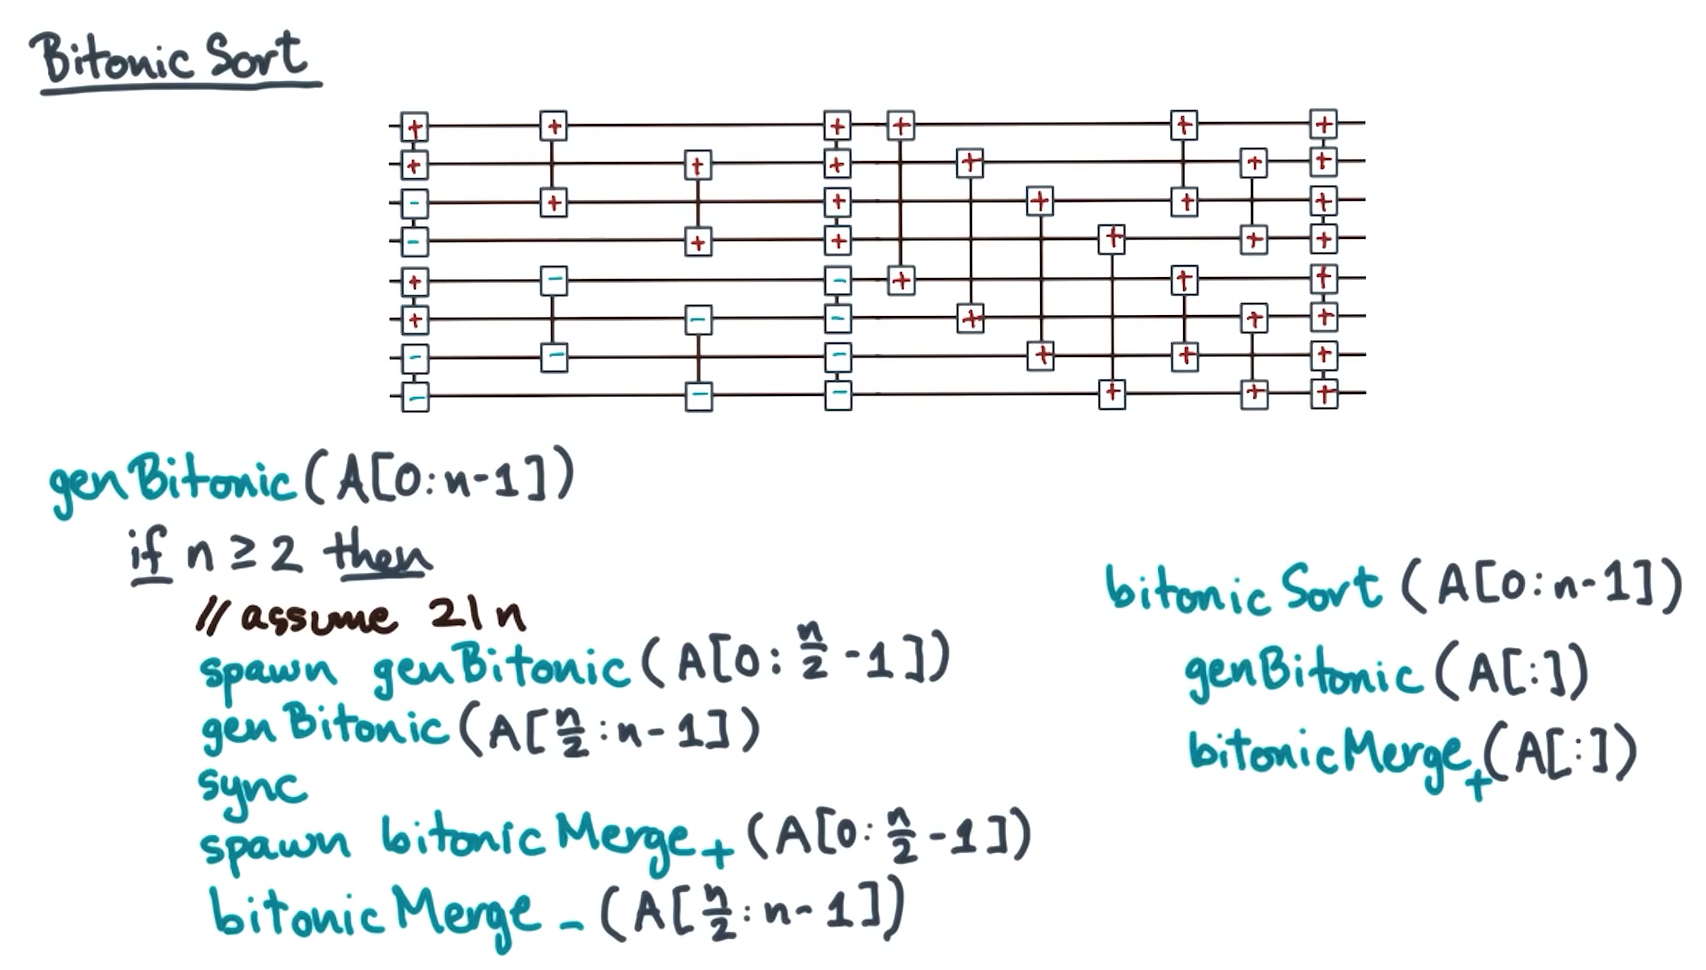 Bitonic Sort
+ + + + + +
+ + + + + +
- + + + + +
- + + + + +
+ - - + + +
+ - - + + +
- - - + + +
- - - + + +
genBitonic(A[0:n-1])
if n ≥ 2 then
// assume 2|n
spawn genBitonic(A[0:n/2-1])
genBitonic(A[n/2:n-1])
sync
spawn bitonicMerge+(A[0:n/2-1])
bitonicMerge-(A[n/2:n-1])
bitonicSort(A[0:n-1])
genBitonic(A[:])
bitonicMerge+(A[:])